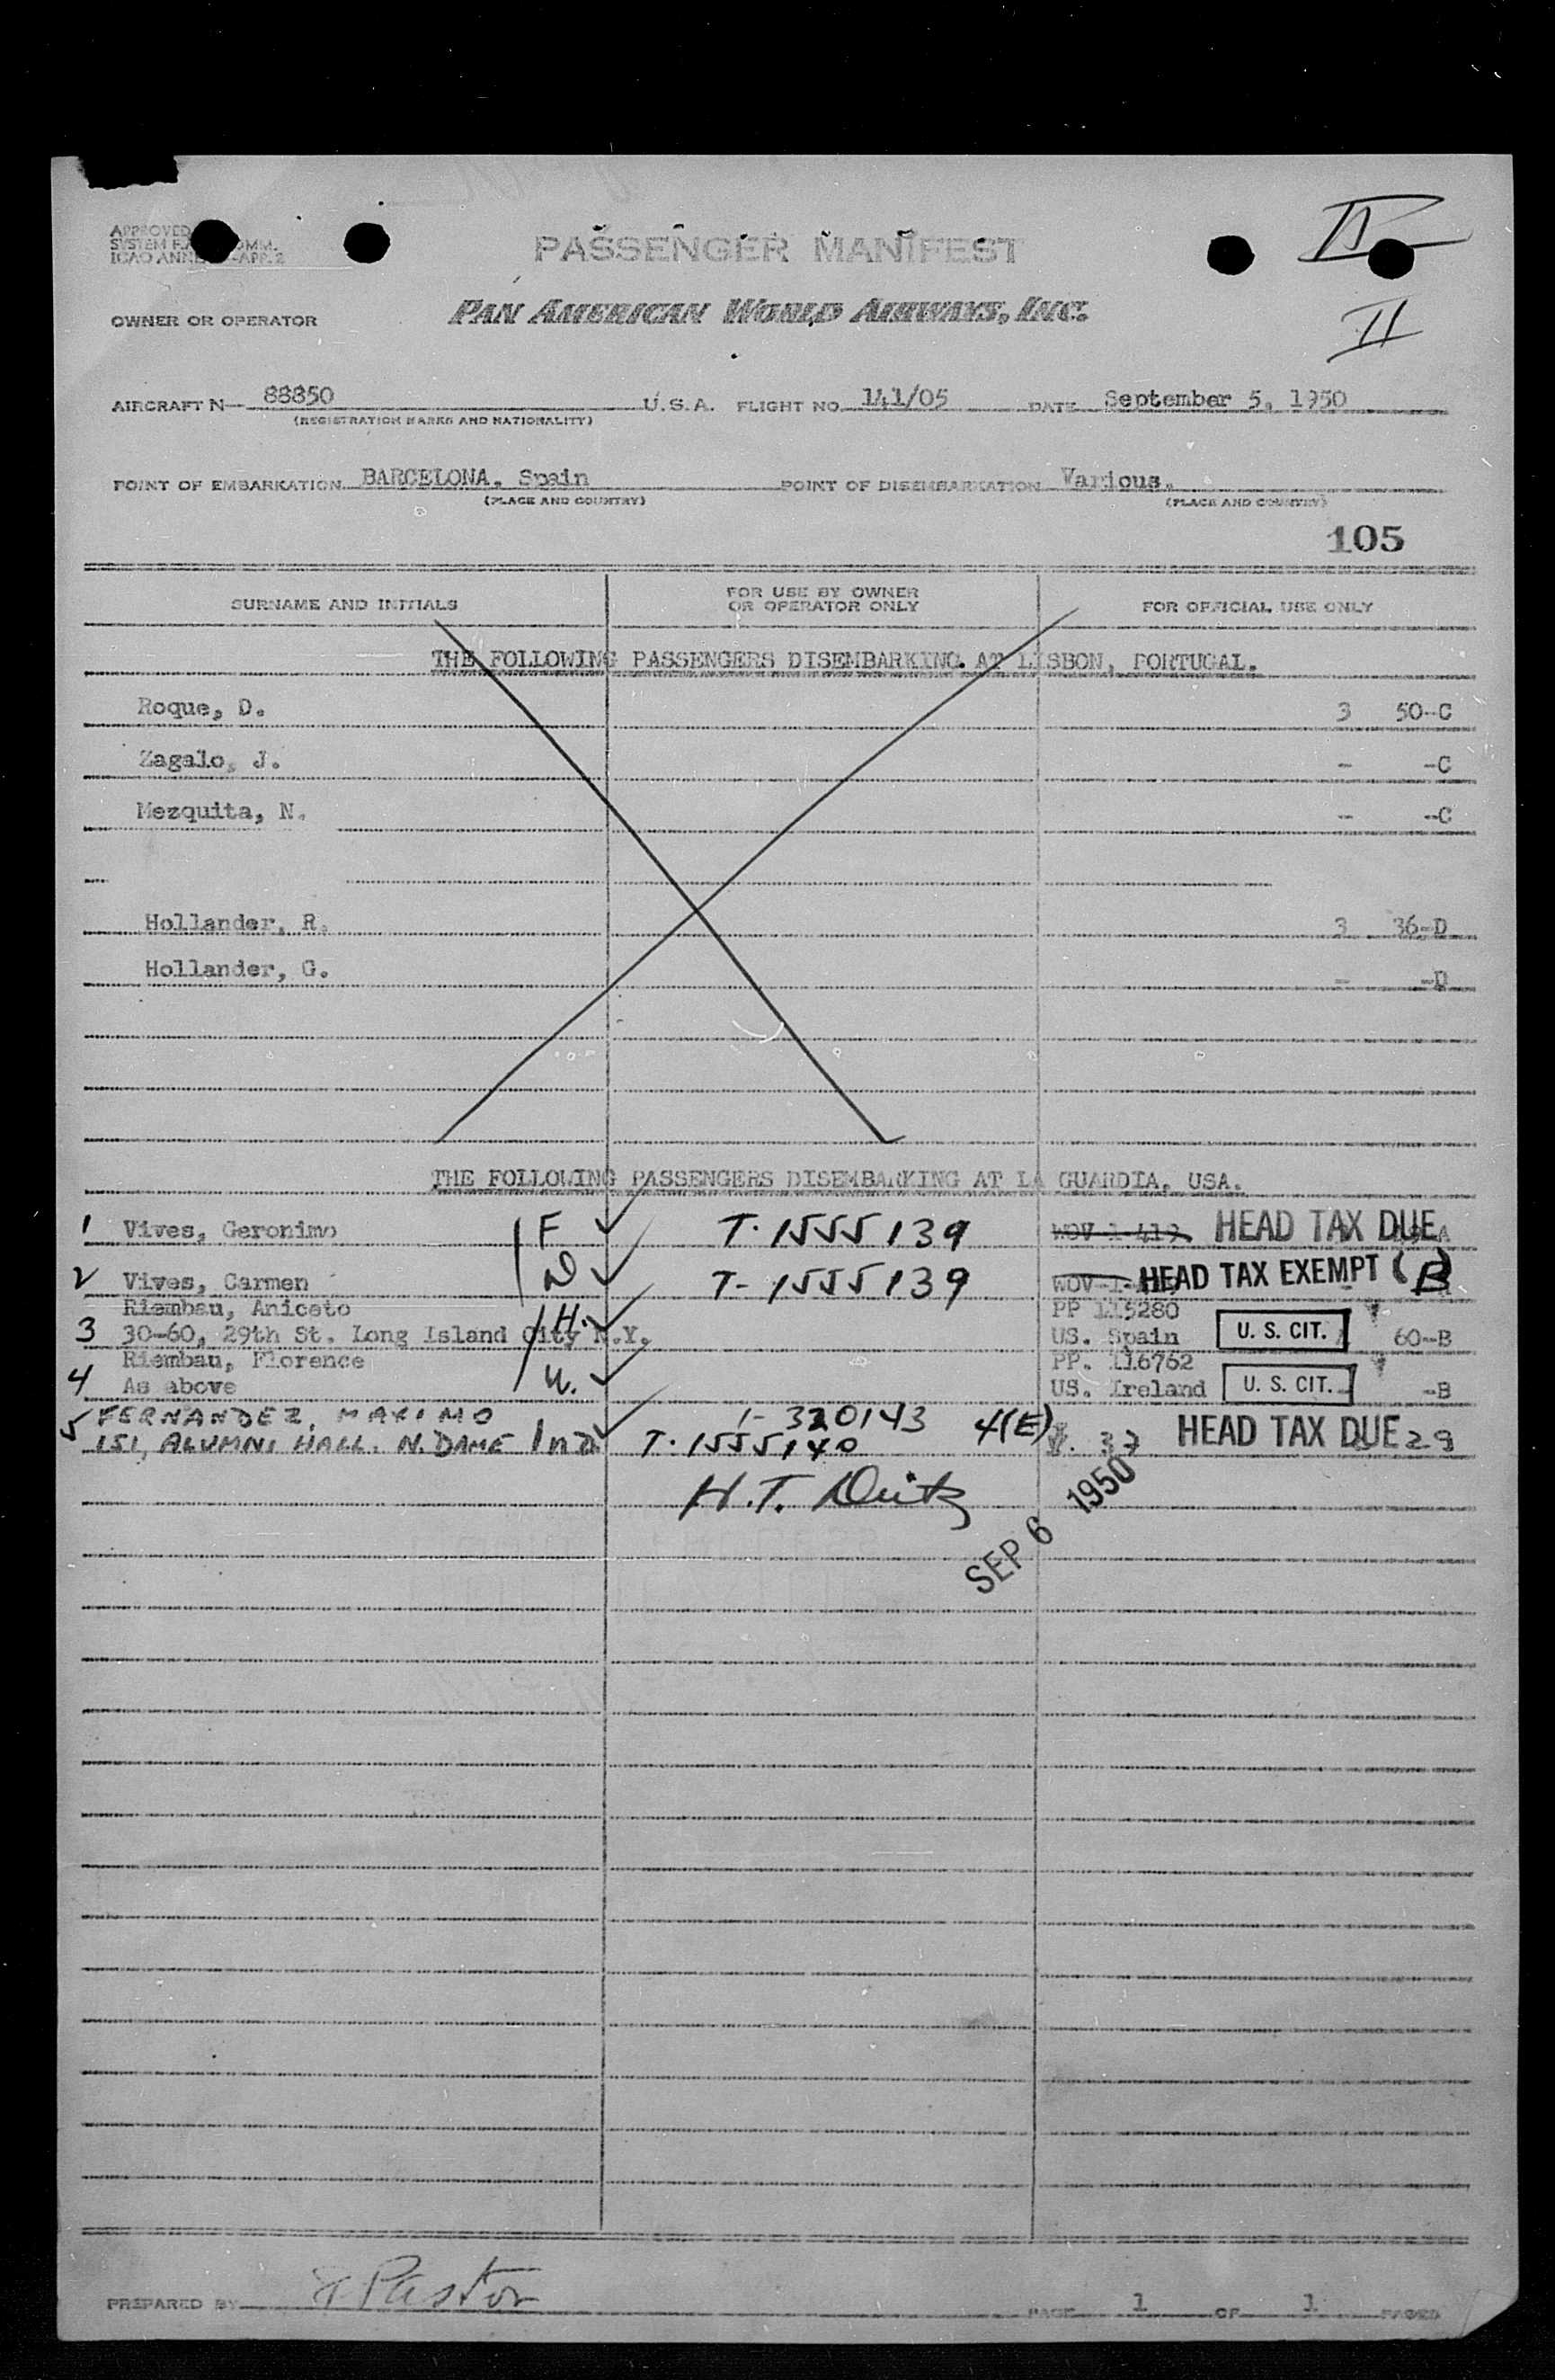 APPROVED
SYSTEM F. OMM.
ICAO ANNE -APP. 2
PASSENGER MANIFEST
II
OWNER OR OPERATOR
PAN AMERICAN WORLD AIRWAYS, INC.
II
AIRCRAFT N— 88850 U.S.A. FLIGHT NO. 141/05 DATE September 5, 1950
(REGISTRATION MARKS AND NATIONALITY)
POINT OF EMBARKATION BARCELONA, Spain POINT OF DISEMBARKATION Various.
(PLACE AND COUNTRY) (PLACE AND COUNTRY)
105
SURNAME AND INITIALS FOR USE BY OWNER OR OPERATOR ONLY FOR OFFICIAL USE ONLY
THE FOLLOWING PASSENGERS DISEMBARKING AT LISBON, PORTUGAL.
Roque, D. 3 50-C
Zagalo, J. - -C
Mezquita, N. - -C
Hollander, R. 3 36-D
Hollander, G. - -D
THE FOLLOWING PASSENGERS DISEMBARKING AT LA GUARDIA, USA.
1 Vives, Geronimo F T-1555139 WOV-1-419 HEAD TAX DUE A
2 Vives, Carmen T-1555139 WOV-1- HEAD TAX EXEMPT (B)
Riembau, Aniceto H. PP 115280
3 30-60, 29th St. Long Island City N.Y. US. Spain U. S. CIT. 60-B
Riembau, Florence PP. 116762
4 As above W. US. Ireland U. S. CIT. -B
5 FERNANDEZ, MAXIMO I-320143 4(E)
151, ALUMNI HALL. N. DAME Ind. T-1555140 37 HEAD TAX DUE 29
H.T. Deitz
SEP 6 1950
PREPARED BY Pastor PAGE 1 OF 1 PAGES